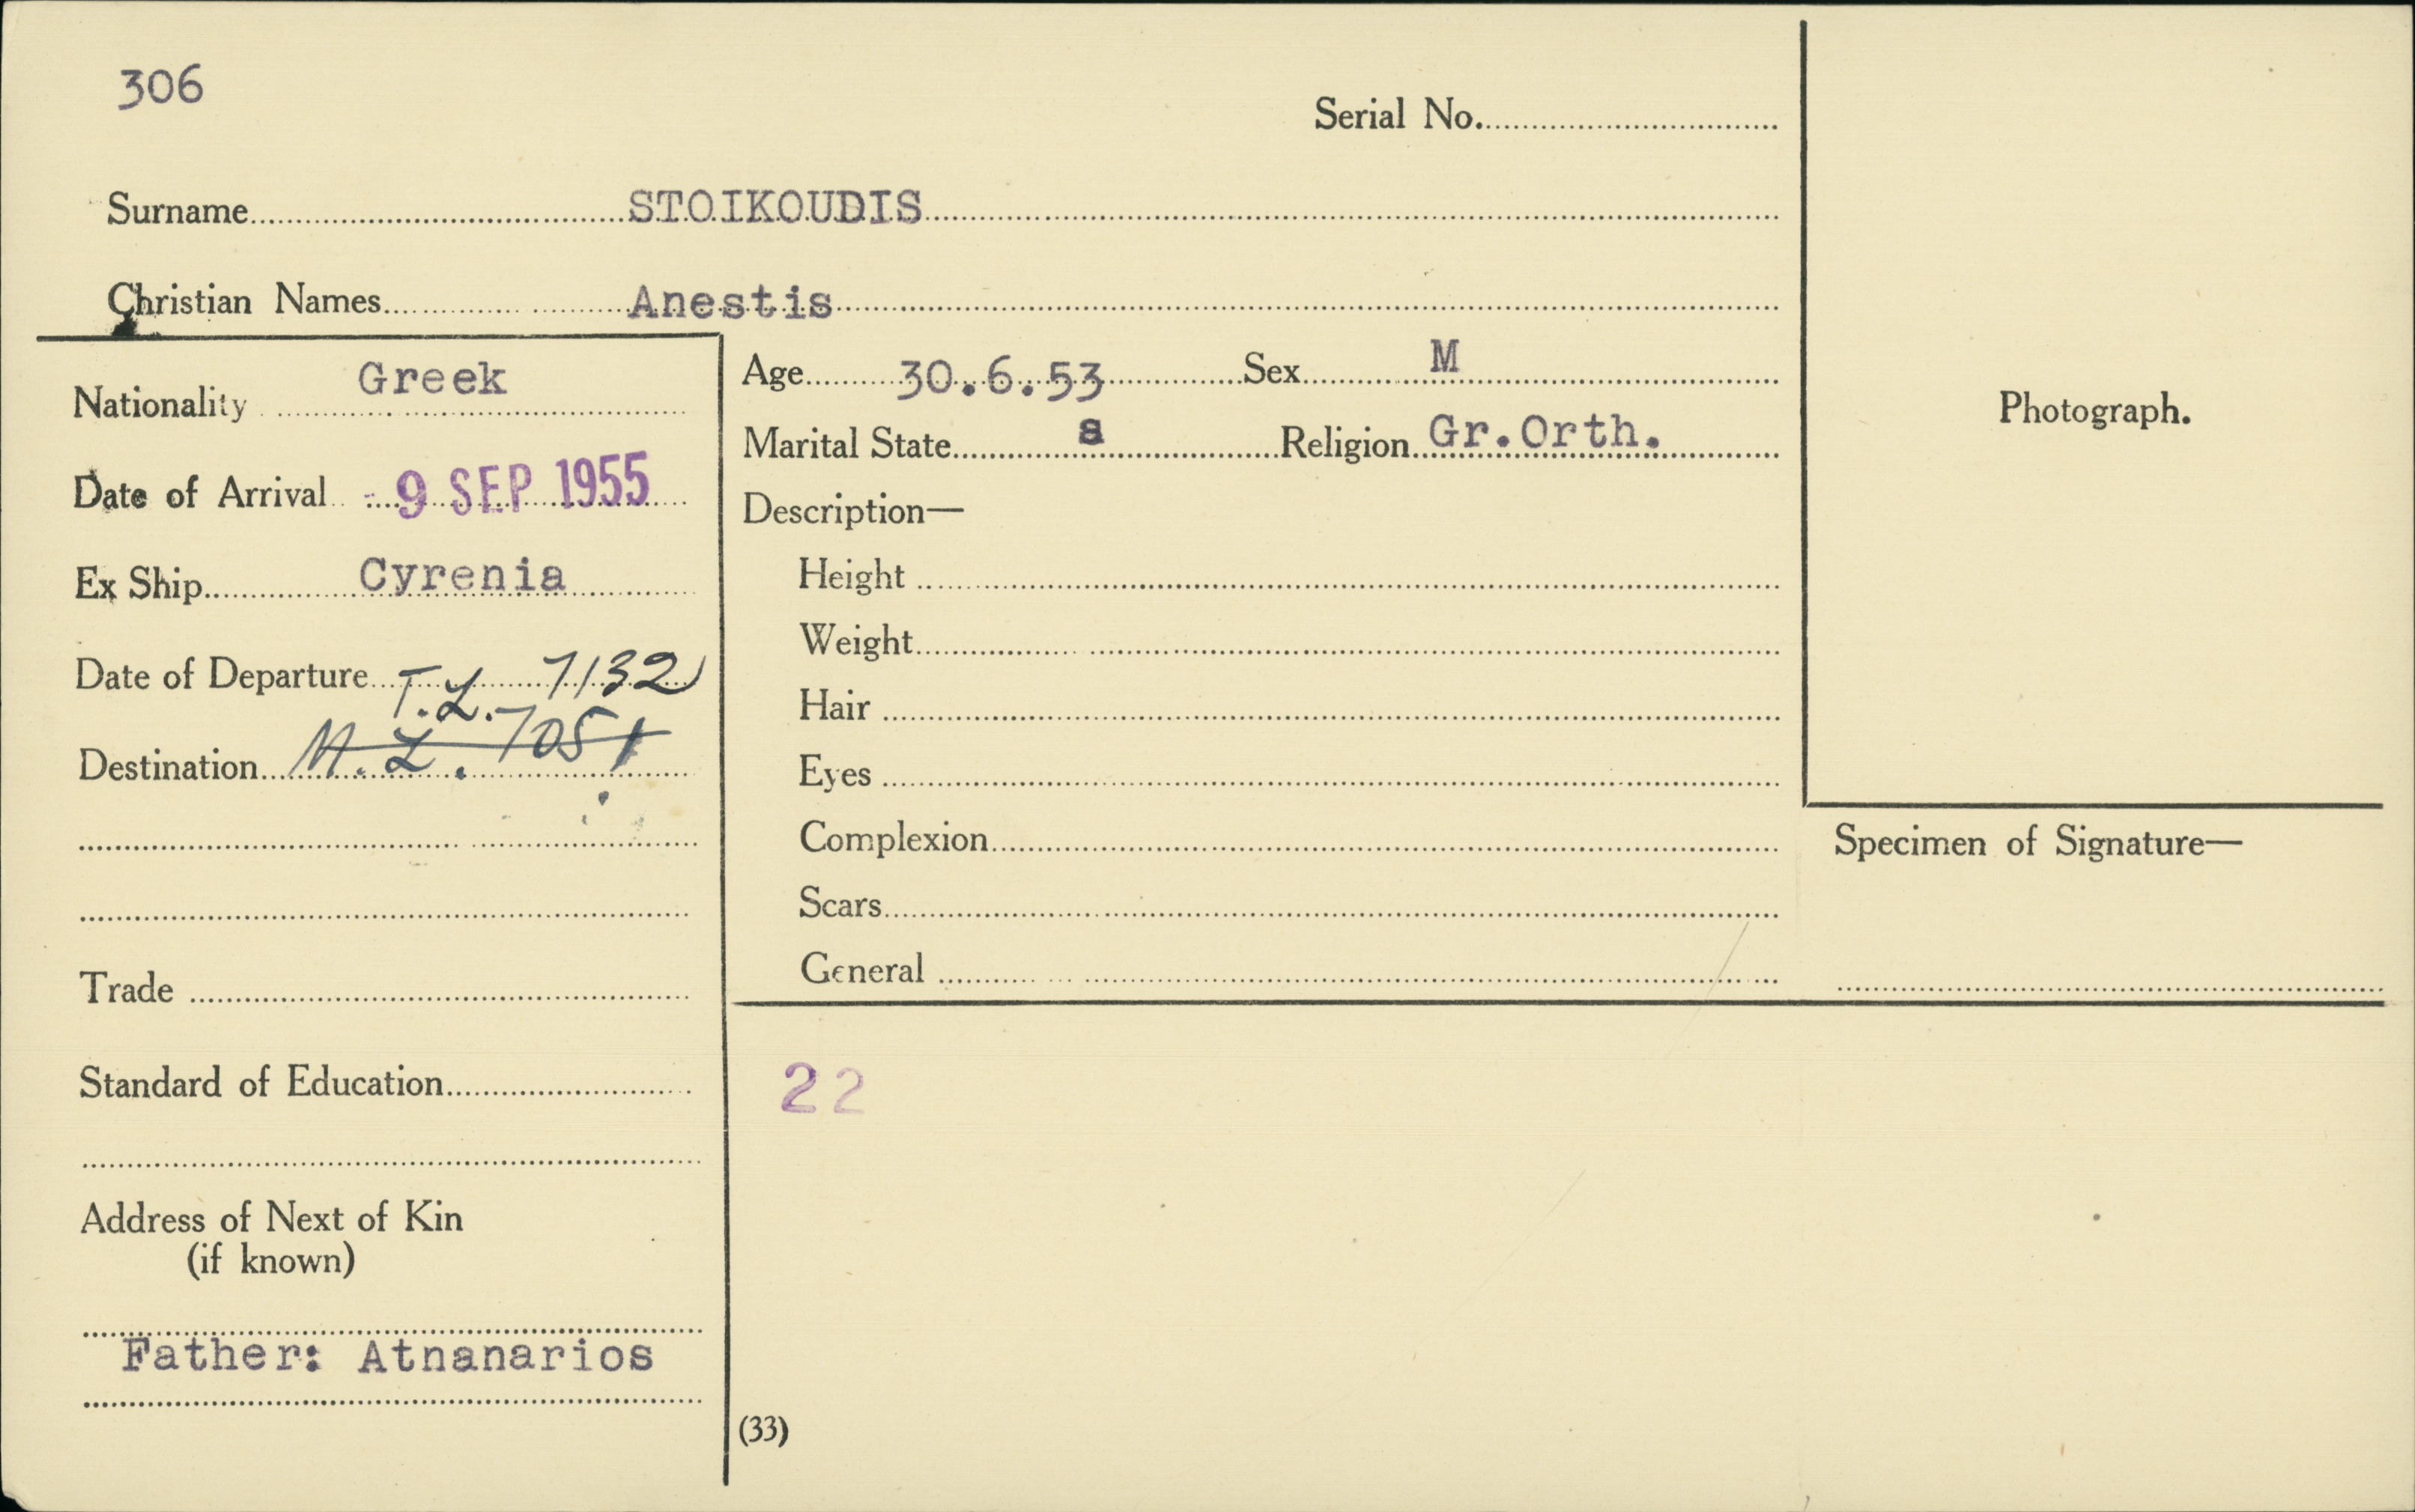 306
Serial No.
Surname STOIKOUDIS
Christian Names Anestis
Nationality Greek
Date of Arrival - 9 SEP 1955
Ex Ship Cyrenia
Date of Departure T.L. 7132
Destination M.L. 7051
Trade
Standard of Education
Address of Next of Kin
(if known)
Father: Atnanarios
Age 30.6.53 Sex M
Marital State s Religion Gr.Orth.
Description—
Height
Weight
Hair
Eyes
Complexion
Scars
General
22
(33)
Photograph.
Specimen of Signature—